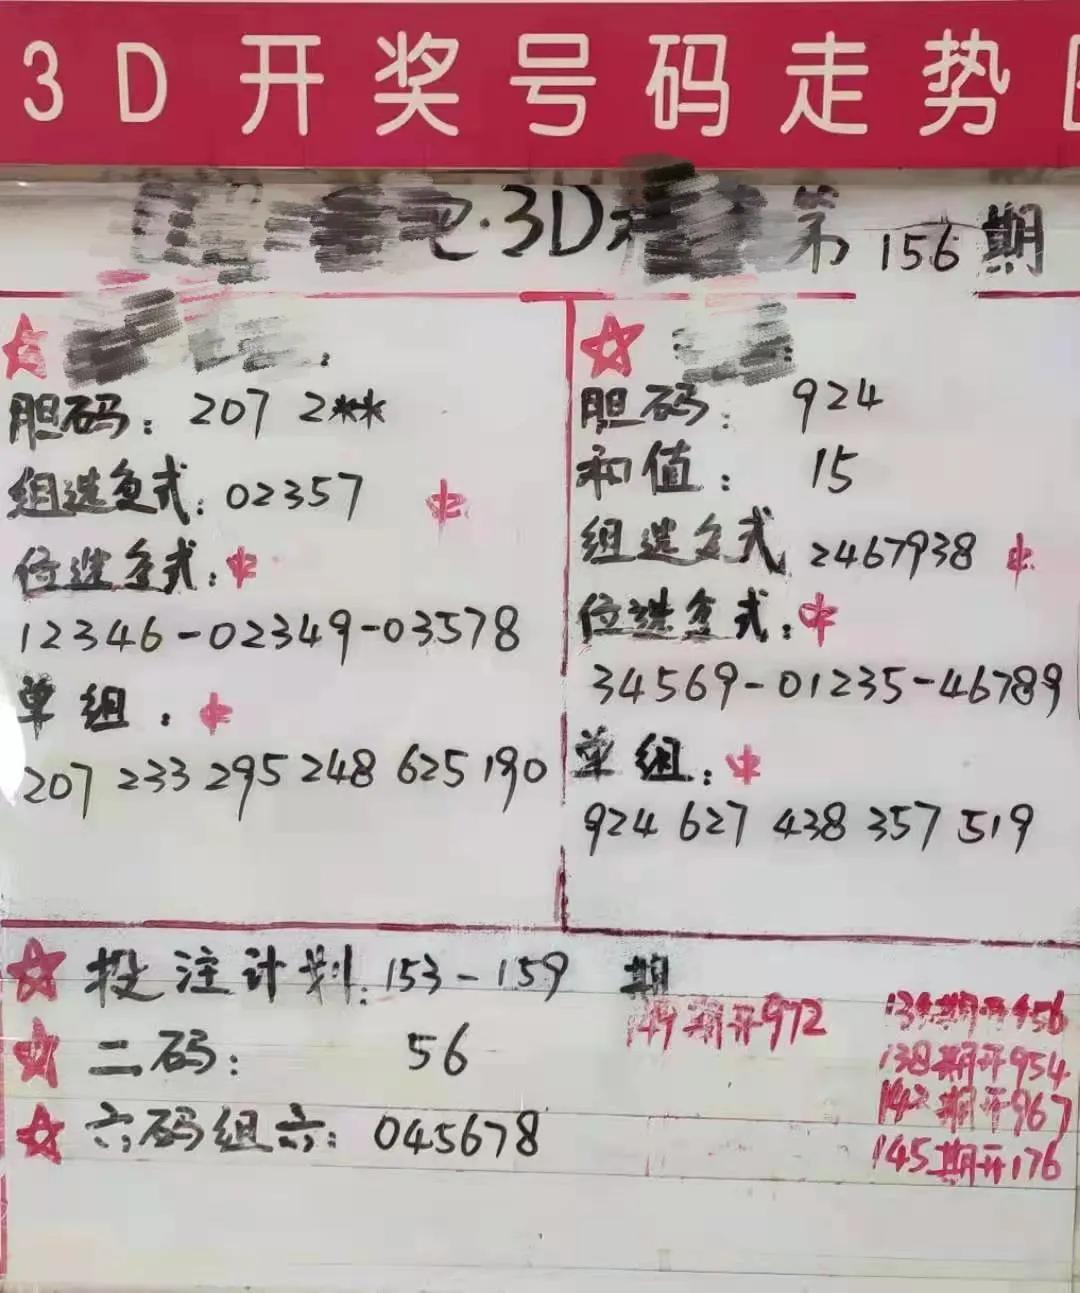 3D开奖号码走势
·3D 第156期
胆码：207 2**
组选复式：02357 中
位选复式：中
12346-02349-03578
单组：中
207 233 295 248 625 190
胆码：924
和值：15
组选复式 2467938 中
位选复式：中
34569-01235-46789
单组：中
924 627 438 357 519
投注计划：153-159 期
二码：56
六码组六：045678
149期开972
138期开954
142期开967
145期开176